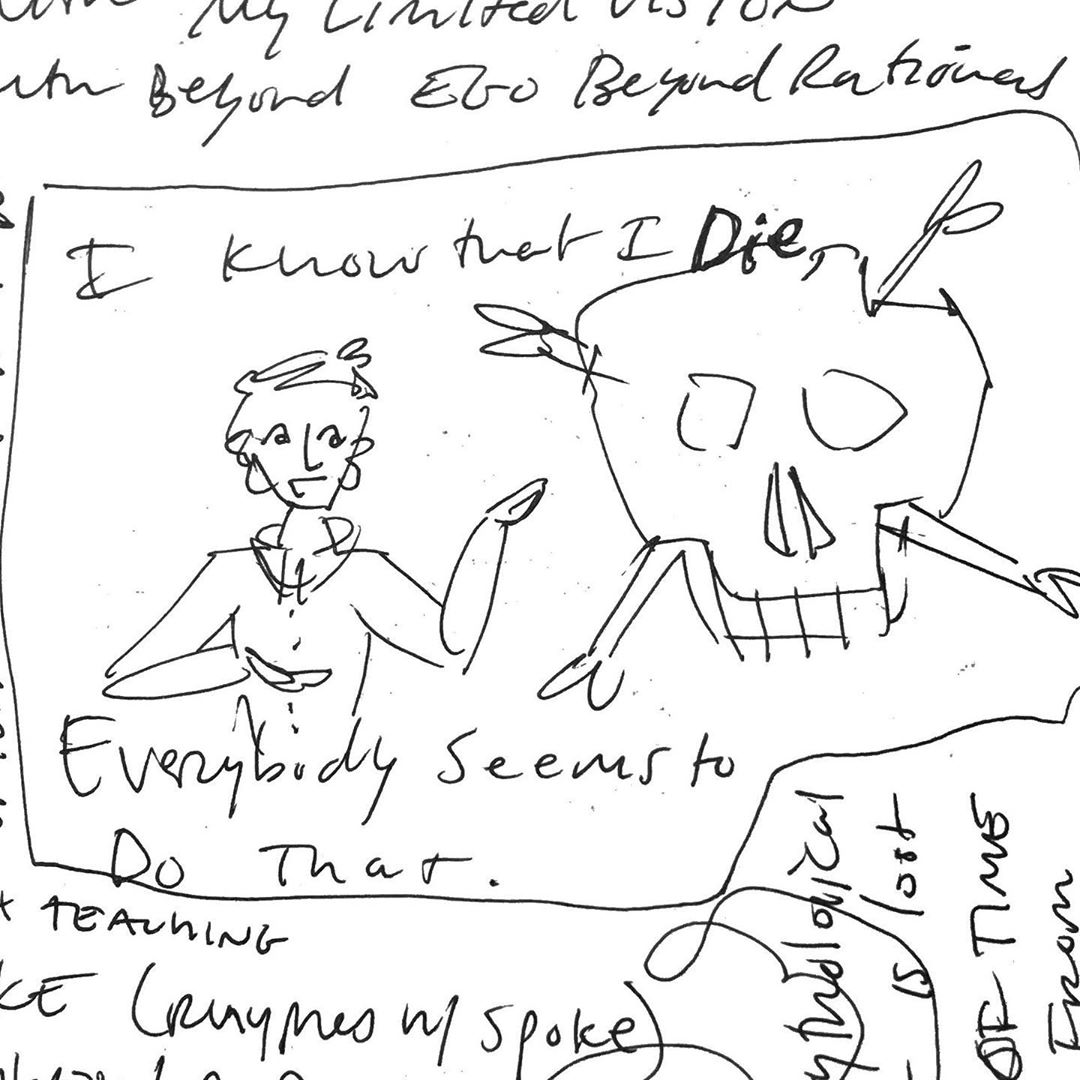 My Limited Vision
Beyond Ego Beyond Rational
I Know that I Die,
Everybody Seems to
Do That.
TEACHING
(Rhymes w/ Spoke)
ythological
is lost
OF TIME
From